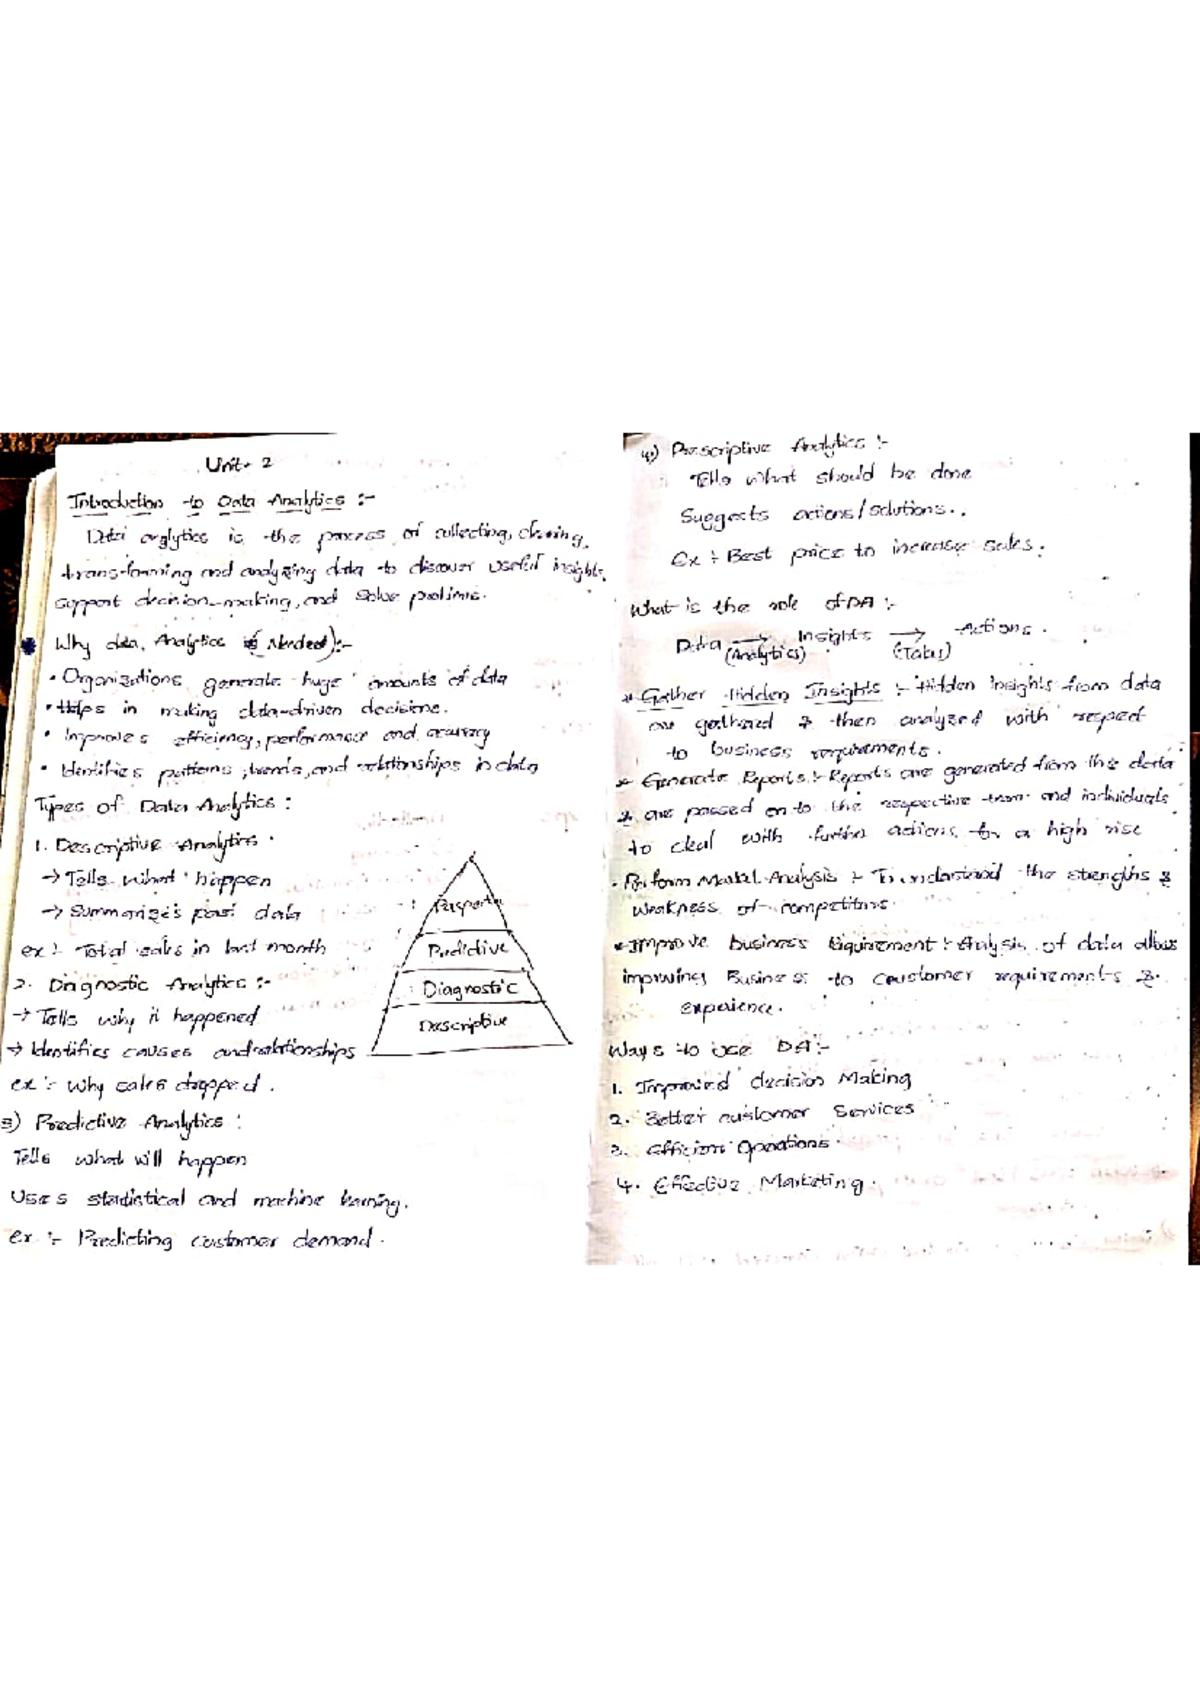 Unit- 2
Introduction to Data Analytics :-
Data analytics is the process of collecting, cleaning,
transforming and analyzing data to discover useful insights,
support decision-making, and solve problems.
Why data Analytics is Needed :-
• Organizations generate huge amounts of data
• Helps in making data-driven decisions.
• Improves efficiency, performance and accuracy
• Identifies patterns, trends, and relationships in data
Types of Data Analytics :
1. Descriptive Analytics.
→ Tells what happen
→ Summarizes past data
ex :- Total sales in last month
2. Diagnostic Analytics :-
→ Tells why it happened
→ Identifies causes and relationships
ex :- Why sales dropped.
Predictive
Diagnostic
Descriptive
3) Predictive Analytics :
Tells what will happen
Uses statistical and machine learning.
ex :- Predicting customer demand.
4) Prescriptive Analytics :-
Tells what should be done
Suggests actions/solutions..
Ex :- Best price to increase sales.
What is the role of DA :-
Data → Insights → Actions.
(Analytics) (Takes)
* Gather Hidden Insights :- Hidden insights from data
are gathered & then analyzed with respect
to business requirements.
* Generate Reports :- Reports are generated from the data
& are passed on to the respective team and individuals
to deal with further actions for a high rise
• Perform Market Analysis :- To understand the strengths &
weakness of competitors.
* Improve business Requirement :- Analysis of data allows
improving Business to Coustomer requirements &
experience.
Ways to use DA :-
1. Improved decision Making
2. Better customer Services
3. Efficient Operations
4. Effective Marketing.